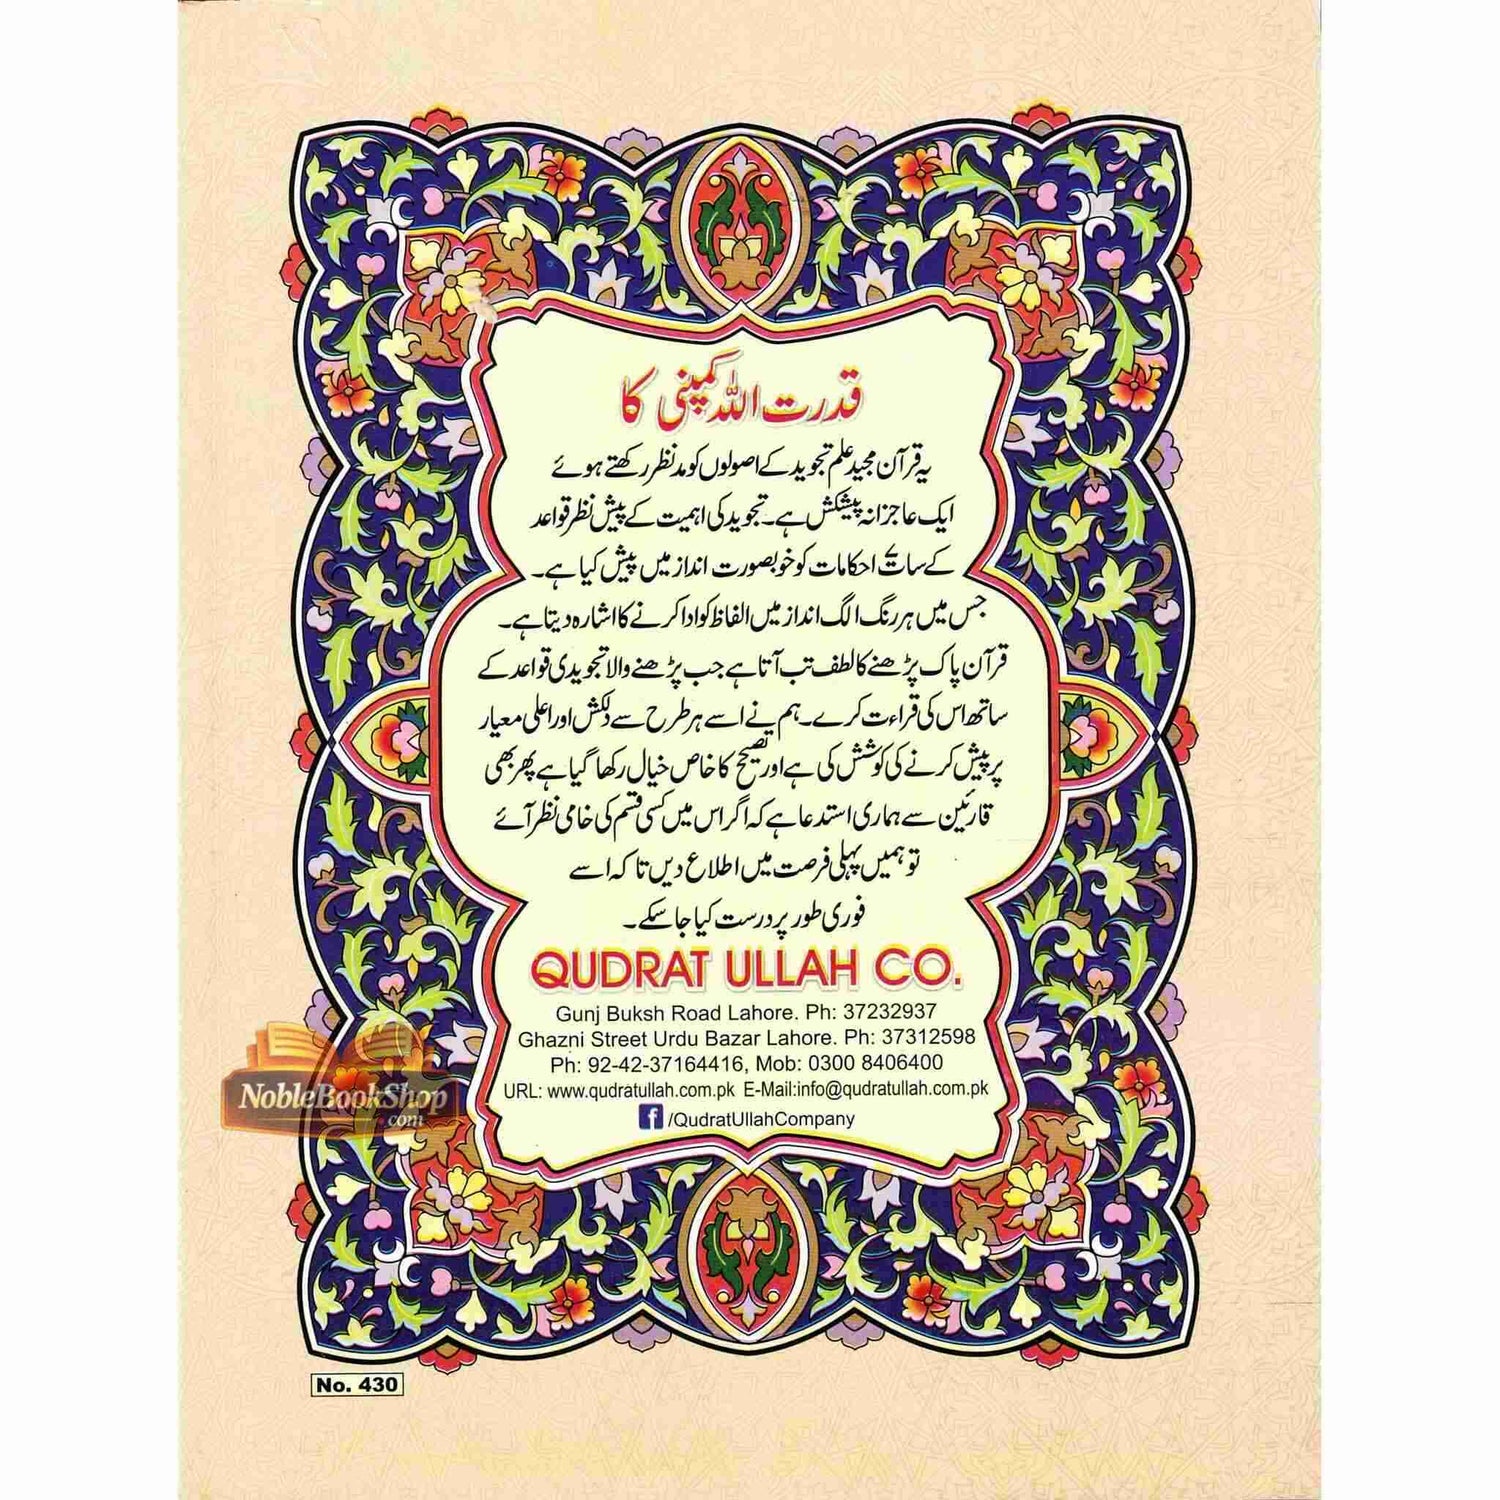 قدرت اللہ کمپنی کا
یہ قرآن مجید علم تجوید کے اصولوں کو مدنظر رکھتے ہوئے
ایک عاجزانہ پیشکش ہے۔ تجوید کی اہمیت کے پیش نظر قواعد
کے سات احکامات کو خوبصورت انداز میں پیش کیا ہے۔
جس میں ہر رنگ الگ انداز میں الفاظ کو ادا کرنے کا اشارہ دیتا ہے۔
قرآن پاک پڑھنے کا لطف تب آتا ہے جب پڑھنے والا تجویدی قواعد کے
ساتھ اس کی قراءت کرے۔ ہم نے اسے ہر طرح سے دلکش اور اعلی معیار
پر پیش کرنے کی کوشش کی ہے اور تصحیح کا خاص خیال رکھا گیا ہے پھر بھی
قارئین سے ہماری استدعا ہے کہ اگر اس میں کسی قسم کی خامی نظر آئے
تو ہمیں پہلی فرصت میں اطلاع دیں تا کہ اسے
فوری طور پر درست کیا جا سکے۔
QUDRAT ULLAH CO.
Gunj Buksh Road Lahore. Ph: 37232937
Ghazni Street Urdu Bazar Lahore. Ph: 37312598
Ph: 92-42-37164416, Mob: 0300 8406400
URL: www.qudratullah.com.pk E-Mail:info@qudratullah.com.pk
f /QudratUllahCompany
NobleBookShop
.com
No. 430